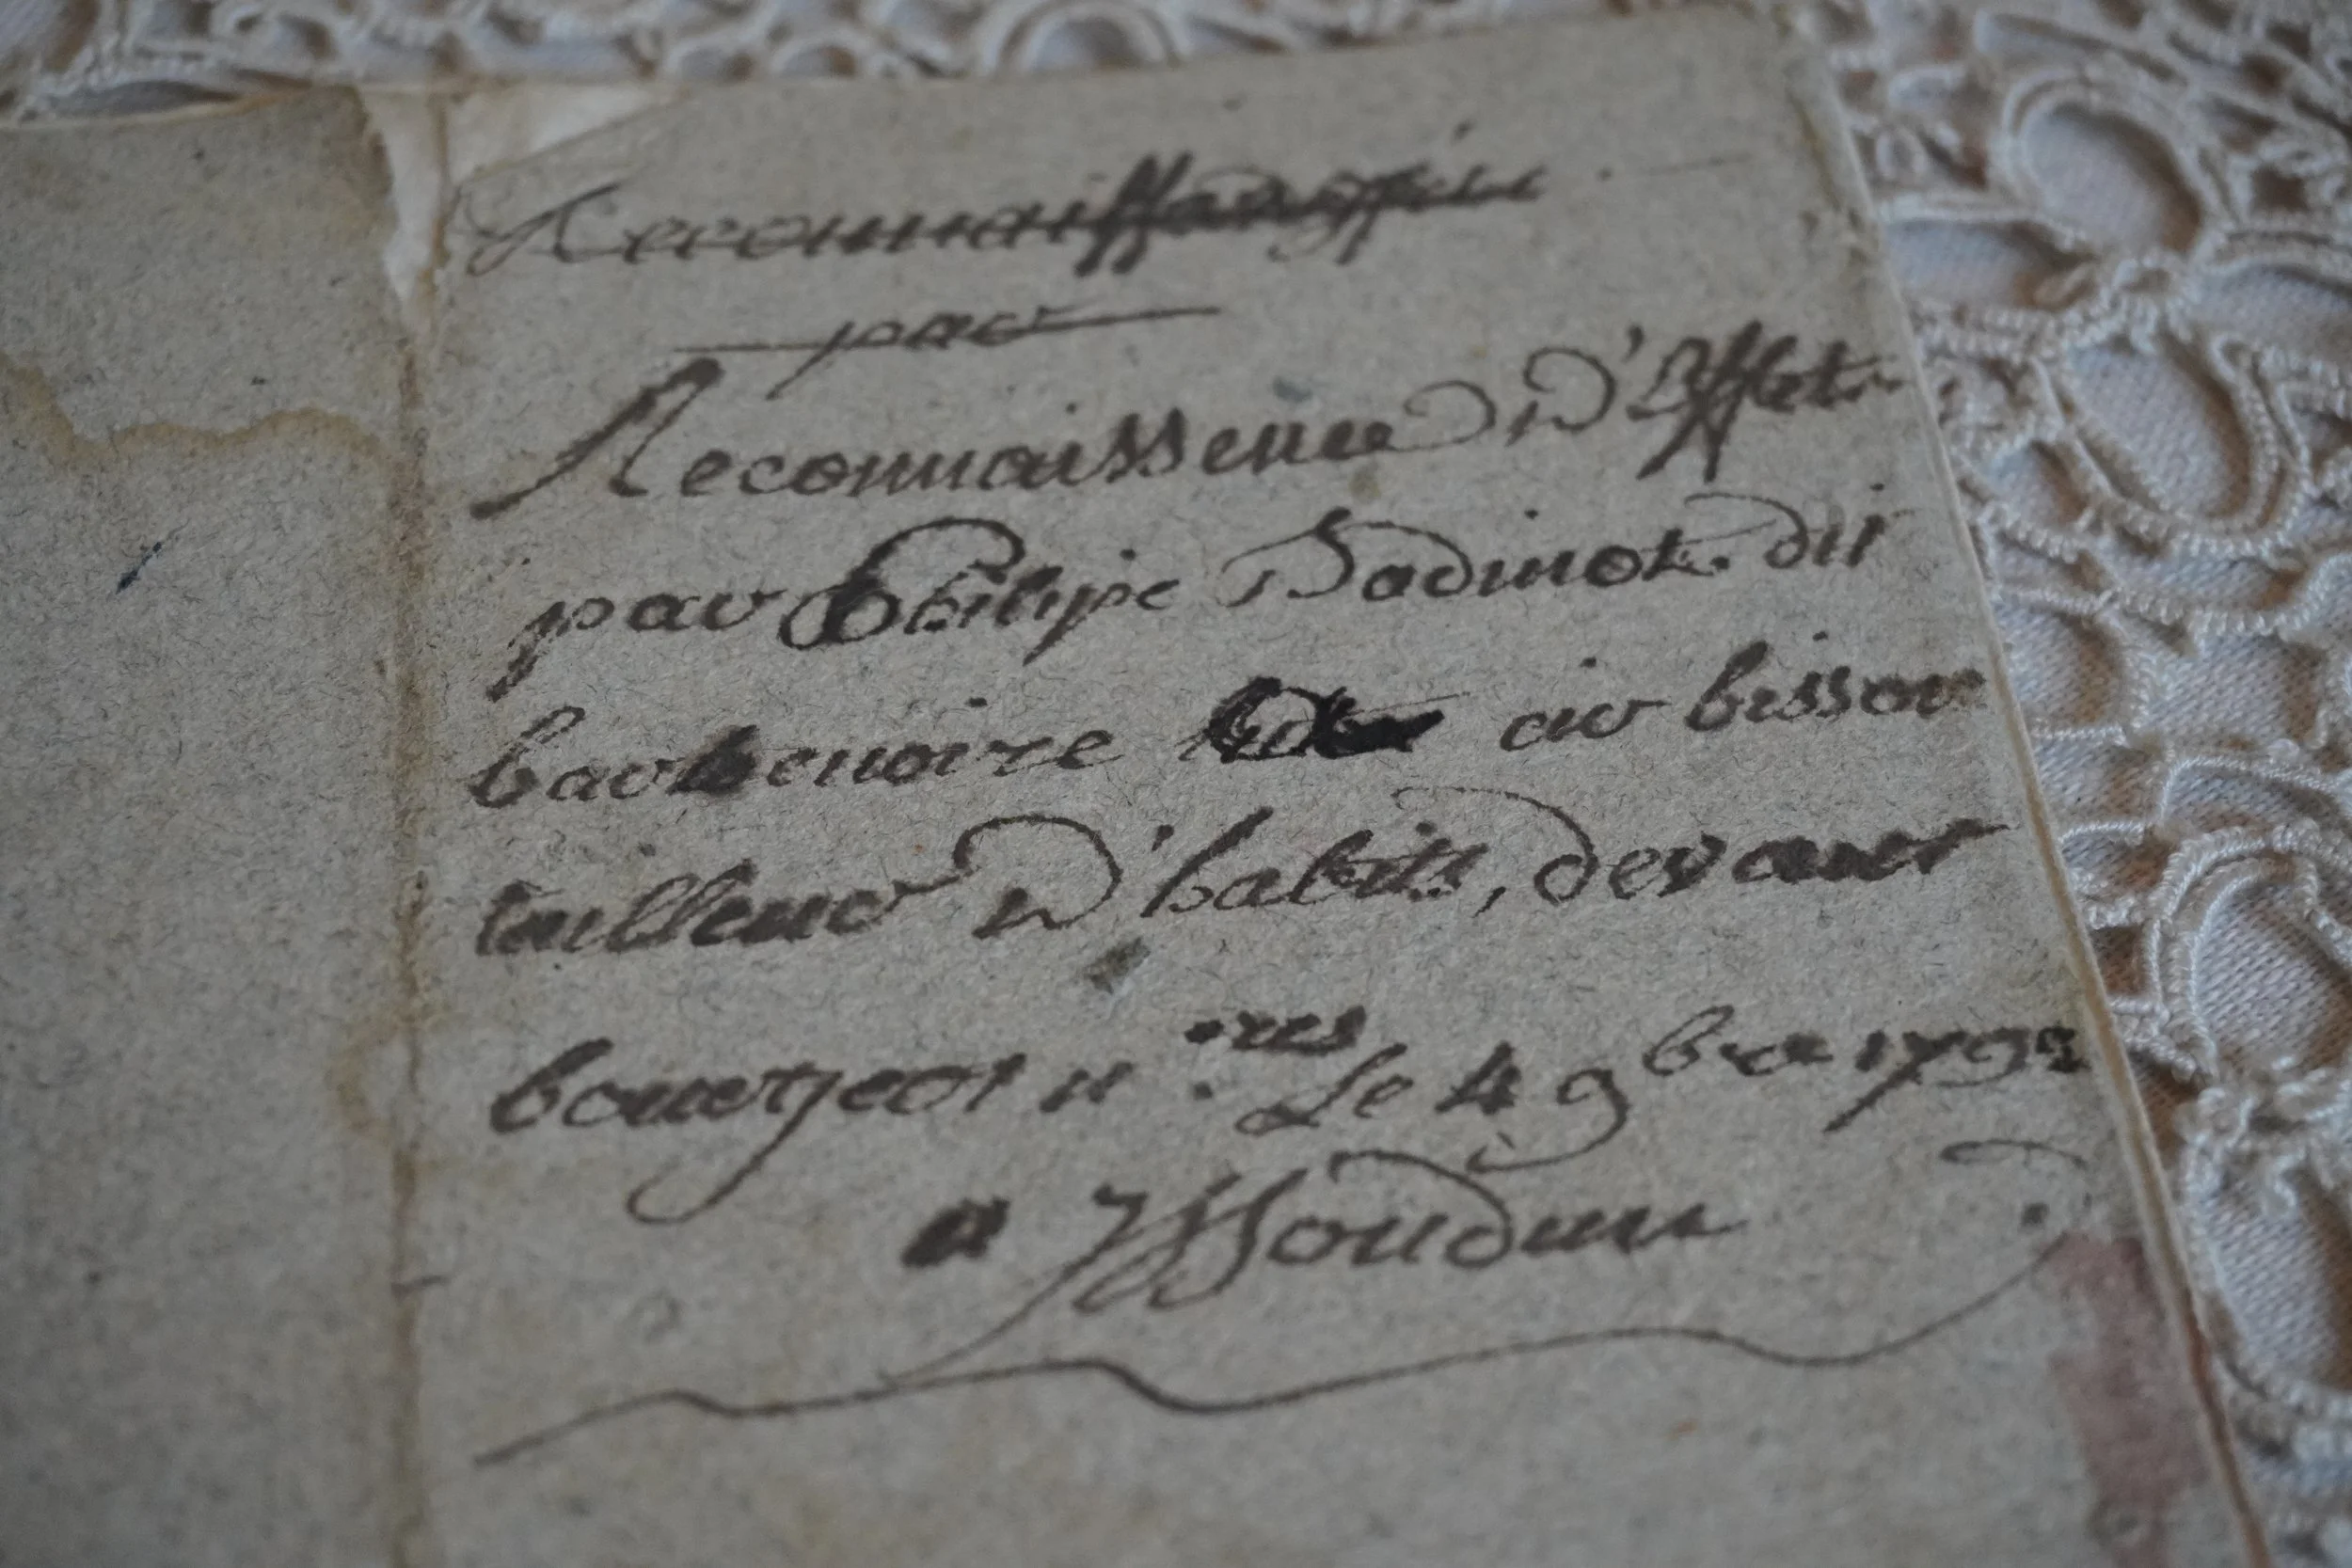 Reconnaissance
par
Reconnaissence d'Effets
par Philipe Badinot dit
barbenoire au bisson
tailleur d'habits, devant
bourgeois n.res Le 4 9bre 1792
a Issoudun